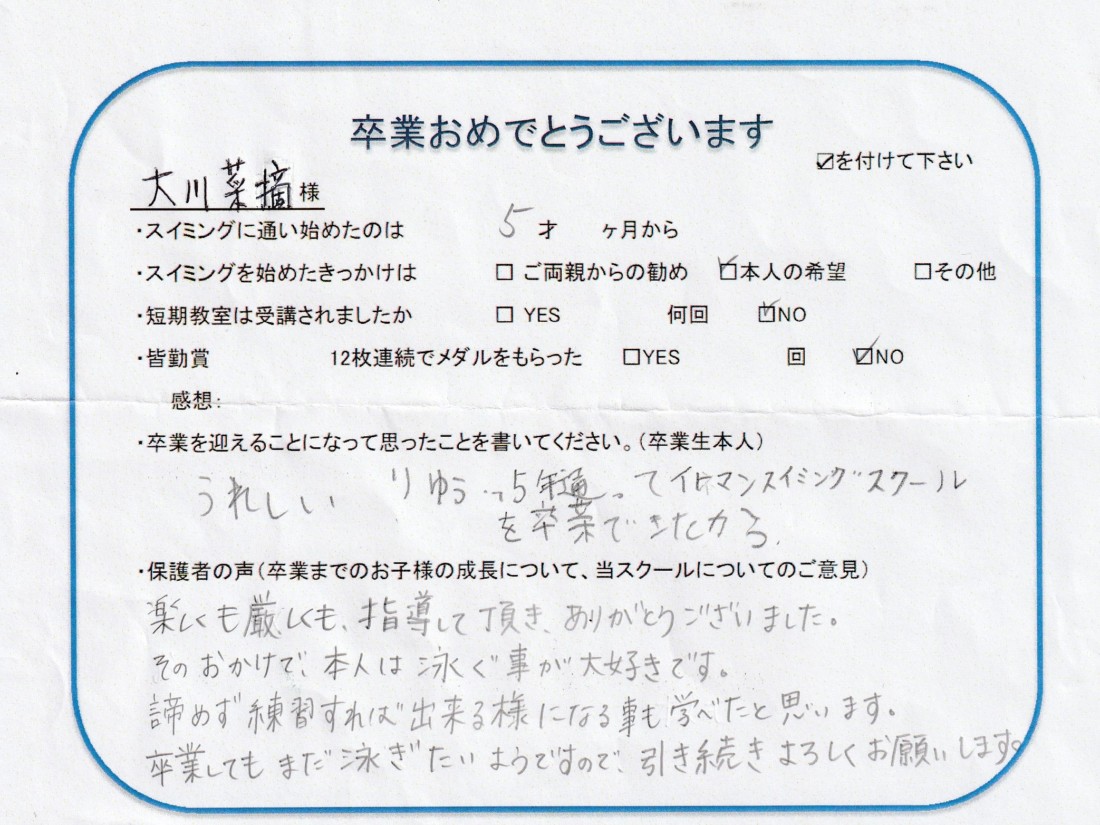 卒業おめでとうございます
☑を付けて下さい
大川菜摘様
・スイミングに通い始めたのは 5才 ヶ月から
・スイミングを始めたきっかけは □ ご両親からの勧め ☑本人の希望 □その他
・短期教室は受講されましたか □ YES 何回 ☑NO
・皆勤賞 12枚連続でメダルをもらった □YES 回 ☑NO
感想:
・卒業を迎えることになって思ったことを書いてください。(卒業生本人)
うれしい りゆう…5年通ってイトマンスイミングスクール
を卒業できたから
・保護者の声(卒業までのお子様の成長について、当スクールについてのご意見)
楽しくも厳しくも、指導して頂き、ありがとうございました。
そのおかげで、本人は泳ぐ事が大好きです。
諦めず練習すれば出来る様になる事も学べたと思います。
卒業してもまだ泳ぎたいようですので、引き続きよろしくお願いします。